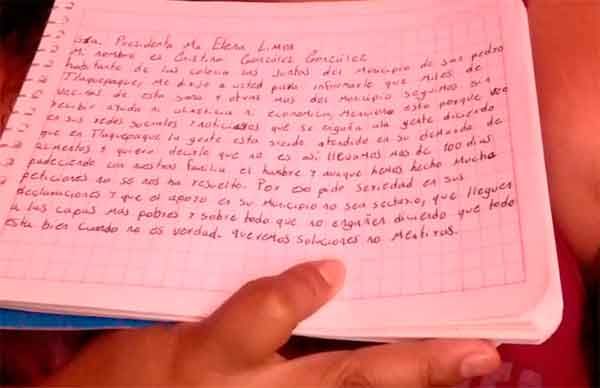 Lda. Presidenta Ma Elena Limon
Mi nombre es Cristina González González
habitante de la colonia las Juntas del Municipio de San pedro
Tlaquepaque, me dirijo a usted para informarle que miles de
vecinas de esta zona y otras mas del municipio seguimos sin
recibir ayuda ni alimenticia ni economica, Menciono esto porque veo
en sus redes sociales y noticieros que se engaña a la gente diciendo
que en Tlaquepaque la gente esta siendo atendida en su demanda de
alimentos y quiero decirle que no es asi llevamos mas de 100 dias
padeciendo con nuestras familia el hambre y aunque hemos hecho mucha
peticiones no se nos ha resuelto. Por eso pido seriedad en sus
declaraciones y que el apoyo en su municipio no sea sectario, que lleguen
a las capas mas pobres y sobre todo que no engañen diciendo que todo
esta bien cuando no es verdad. queremos soluciones no mentiras.